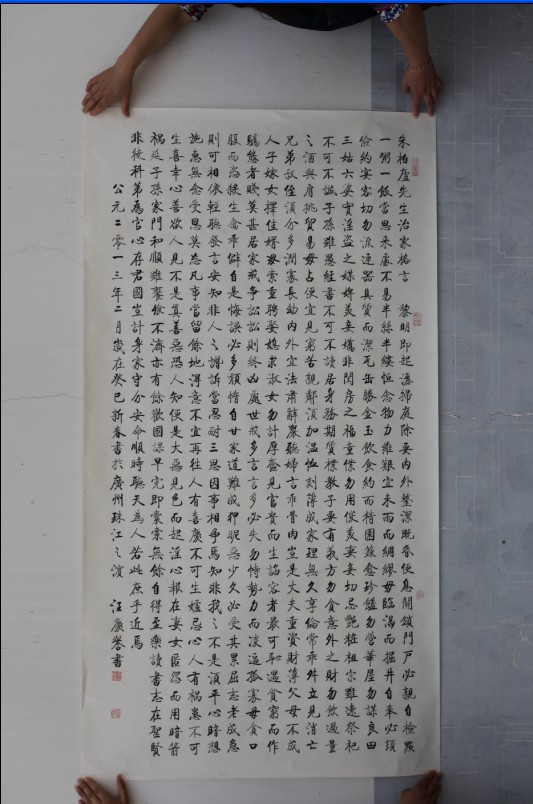 朱柏廬先生治家格言 黎明即起灑掃庭除要內外整潔既昏便息關鎖門戶必親自檢點
一粥一飯當思來處不易半絲半縷恒念物力維艱宜未雨而綢繆毋臨渴而掘井自奉必須
儉約宴客切勿流連器具質而潔瓦缶勝金玉飲食約而精園蔬愈珍饈勿營華屋勿謀良田
三姑六婆實淫盜之媒婢美妾嬌非閨房之福童僕勿用俊美妻妾切忌艷粧祖宗雖遠祭祀
不可不誠子孫雖愚經書不可不讀居身務期質樸教子要有義方勿貪意外之財勿飲過量
之酒與肩挑貿易毋占便宜見窮苦親鄰須加溫恤刻薄成家理無久享倫常乖舛立見消亡
兄弟叔侄須分多潤寡長幼內外宜法肅辭嚴聽婦言乖骨肉豈是丈夫重資財薄父母不成
人子嫁女擇佳婿毋索重聘娶媳求淑女勿計厚奩見富貴而生諂容者最可恥遇貧窮而作
驕態者賤莫甚居家戒爭訟訟則終凶處世戒多言言多必失勿恃勢力而凌逼孤寡毋貪口
腹而恣殺生禽乖僻自是悔誤必多頹惰自甘家道難成狎昵惡少久必受其累屈志老成急
則可相依輕聽發言安知非人之譖訴當忍耐三思因事相爭焉知非我之不是須平心暗想
施惠無念受恩莫忘凡事當留餘地得意不宜再往人有喜慶不可生妒忌心人有禍患不可
生喜幸心善欲人見不是真善惡恐人知便是大惡見色而起淫心報在妻女匿怨而用暗箭
禍延子孫家門和順雖饔飧不濟亦有餘歡國課早完即囊橐無餘自得至樂讀書志在聖賢
非徒科第為官心存君國豈計身家守分安命順時聽天為人若此庶乎近焉
公元二零一三年二月歲在癸巳新春書於廣州珠江之濱 汪廣譽書